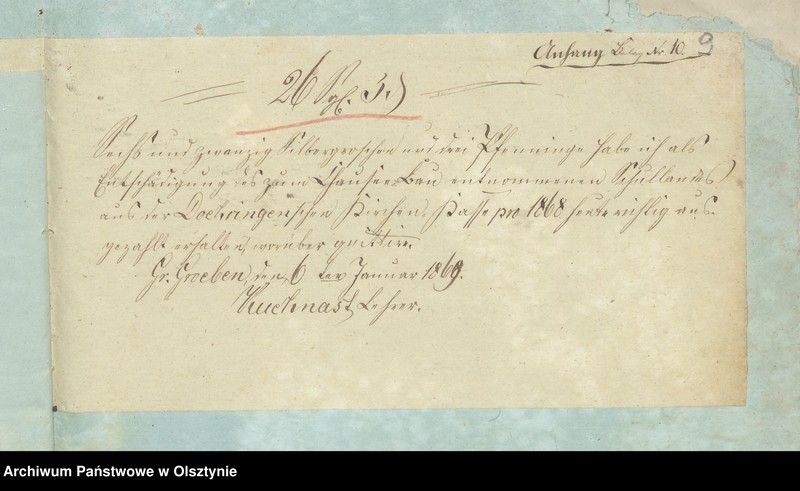 Anhang Belag Nr. 10. 9
26 Sgl. 3 ₰
Sechs und zwanzig Silbergroschen und drei Pfenninge habe ich als
Entschädigung des zum Chaussee-Bau entnommenen Schullandes
aus der Doehringenschen Kirchen-Kasse pro 1868 heute richtig aus-
gezahlt erhalten, worüber quittire.
Gr. Groeben, den 6 ten Januar 1869.
Kuchnast Lehrer.
Archiwum Państwowe w Olsztynie